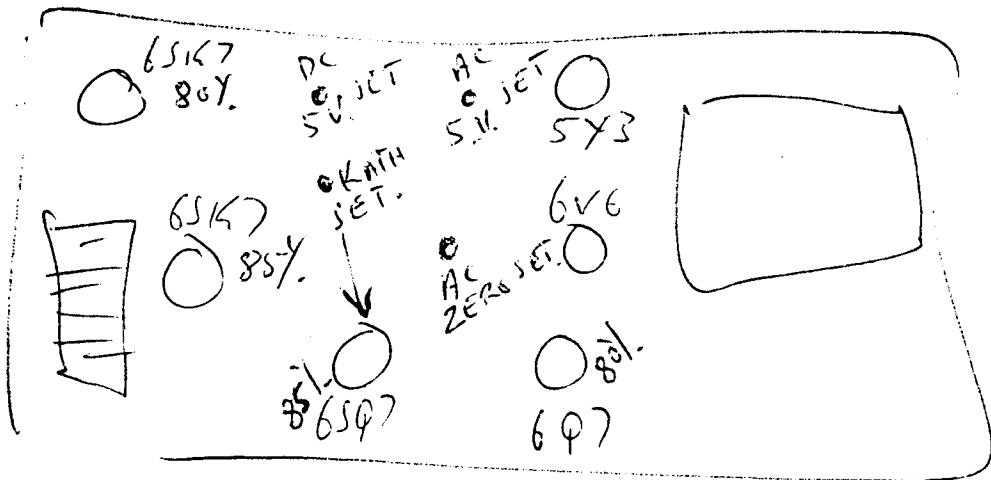 6SK7
80%.
DC
5V. SET
AC
5.V. SET
5Y3
KATH
SET.
6SK7
85%.
6V6
AC
ZERO SET.
85%.
6SQ7
80%.
6Q7